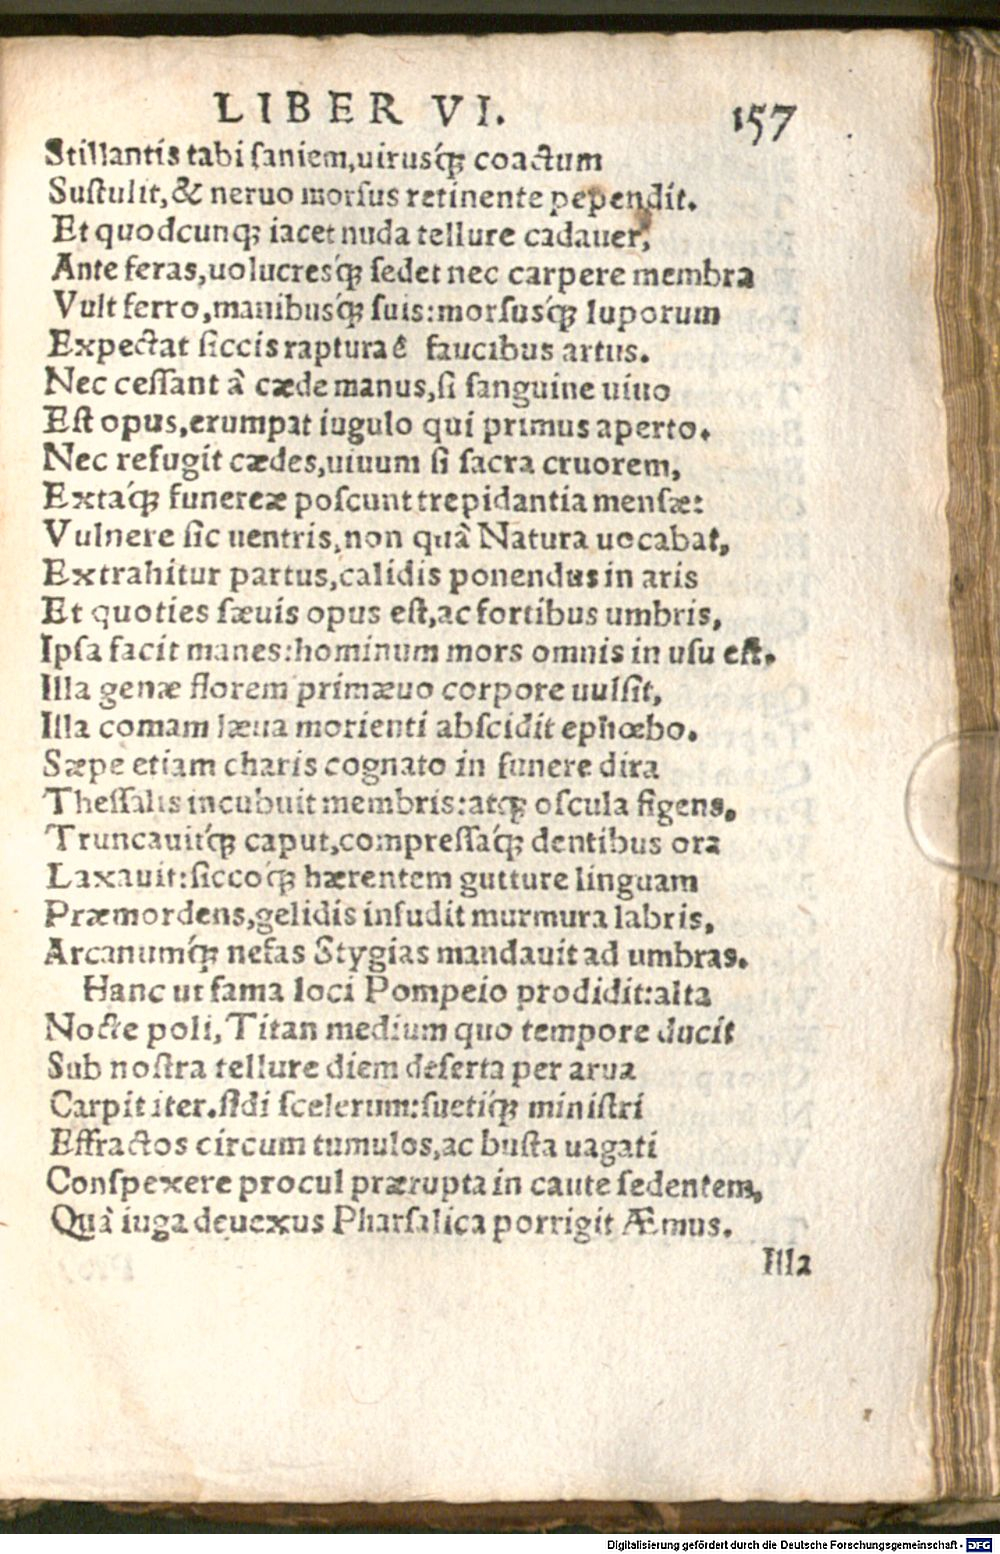 LIBER VI. 157
Stillantis tabi saniem,uirusq́; coactum
Sustulit,& neruo morsus retinente pependit.
Et quodcunq; iacet nuda tellure cadauer,
Ante feras,uolucresq́; sedet nec carpere membra
Vult ferro,manibusq́; suis:morsusq́; luporum
Expectat siccis raptura é faucibus artus.
Nec cessant à cæde manus,si sanguine uiuo
Est opus,erumpat iugulo qui primus aperto.
Nec refugit cædes,uiuum si sacra cruorem,
Extaq́; funereæ poscunt trepidantia mensæ:
Vulnere sic uentris,non quà Natura uocabat,
Extrahitur partus,calidis ponendus in aris
Et quoties sæuis opus est,ac fortibus umbris,
Ipsa facit manes:hominum mors omnis in usu est.
Illa genæ florem primæuo corpore uulsit,
Illa comam læua morienti abscidit ephœbo.
Sæpe etiam charis cognato in funere dira
Thessalis incubuit membris:atq; oscula figens,
Truncauitq́; caput,compressaq́; dentibus ora
Laxauit:siccoq́; hærentem gutture linguam
Præmordens,gelidis infudit murmura labris,
Arcanumq́; nefas Stygias mandauit ad umbras.
Hanc ut fama loci Pompeio prodidit:alta
Nocte poli,Titan medium quo tempore ducit
Sub nostra tellure diem deserta per arua
Carpit iter.fidi scelerum:suetiq́; ministri
Effractos circum tumulos,ac busta uagati
Conspexere procul prærupta in caute sedentem,
Quà iuga deuexus Pharsalica porrigit Æmus.
Illa
Digitalisierung gefördert durch die Deutsche Forschungsgemeinschaft - DFG